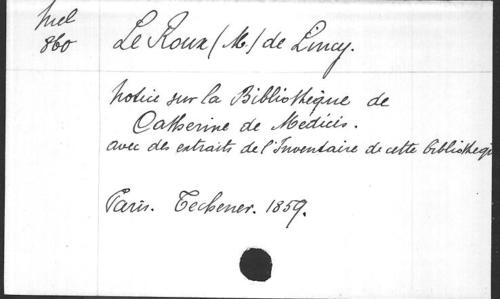 Mel
860
Le Roux (M.) de Lincy.
Notice sur la Bibliothèque de
Catherine de Medicis.
avec des extraits de l'Inventaire de cette bibliothequ
Paris. Techener. 1859.